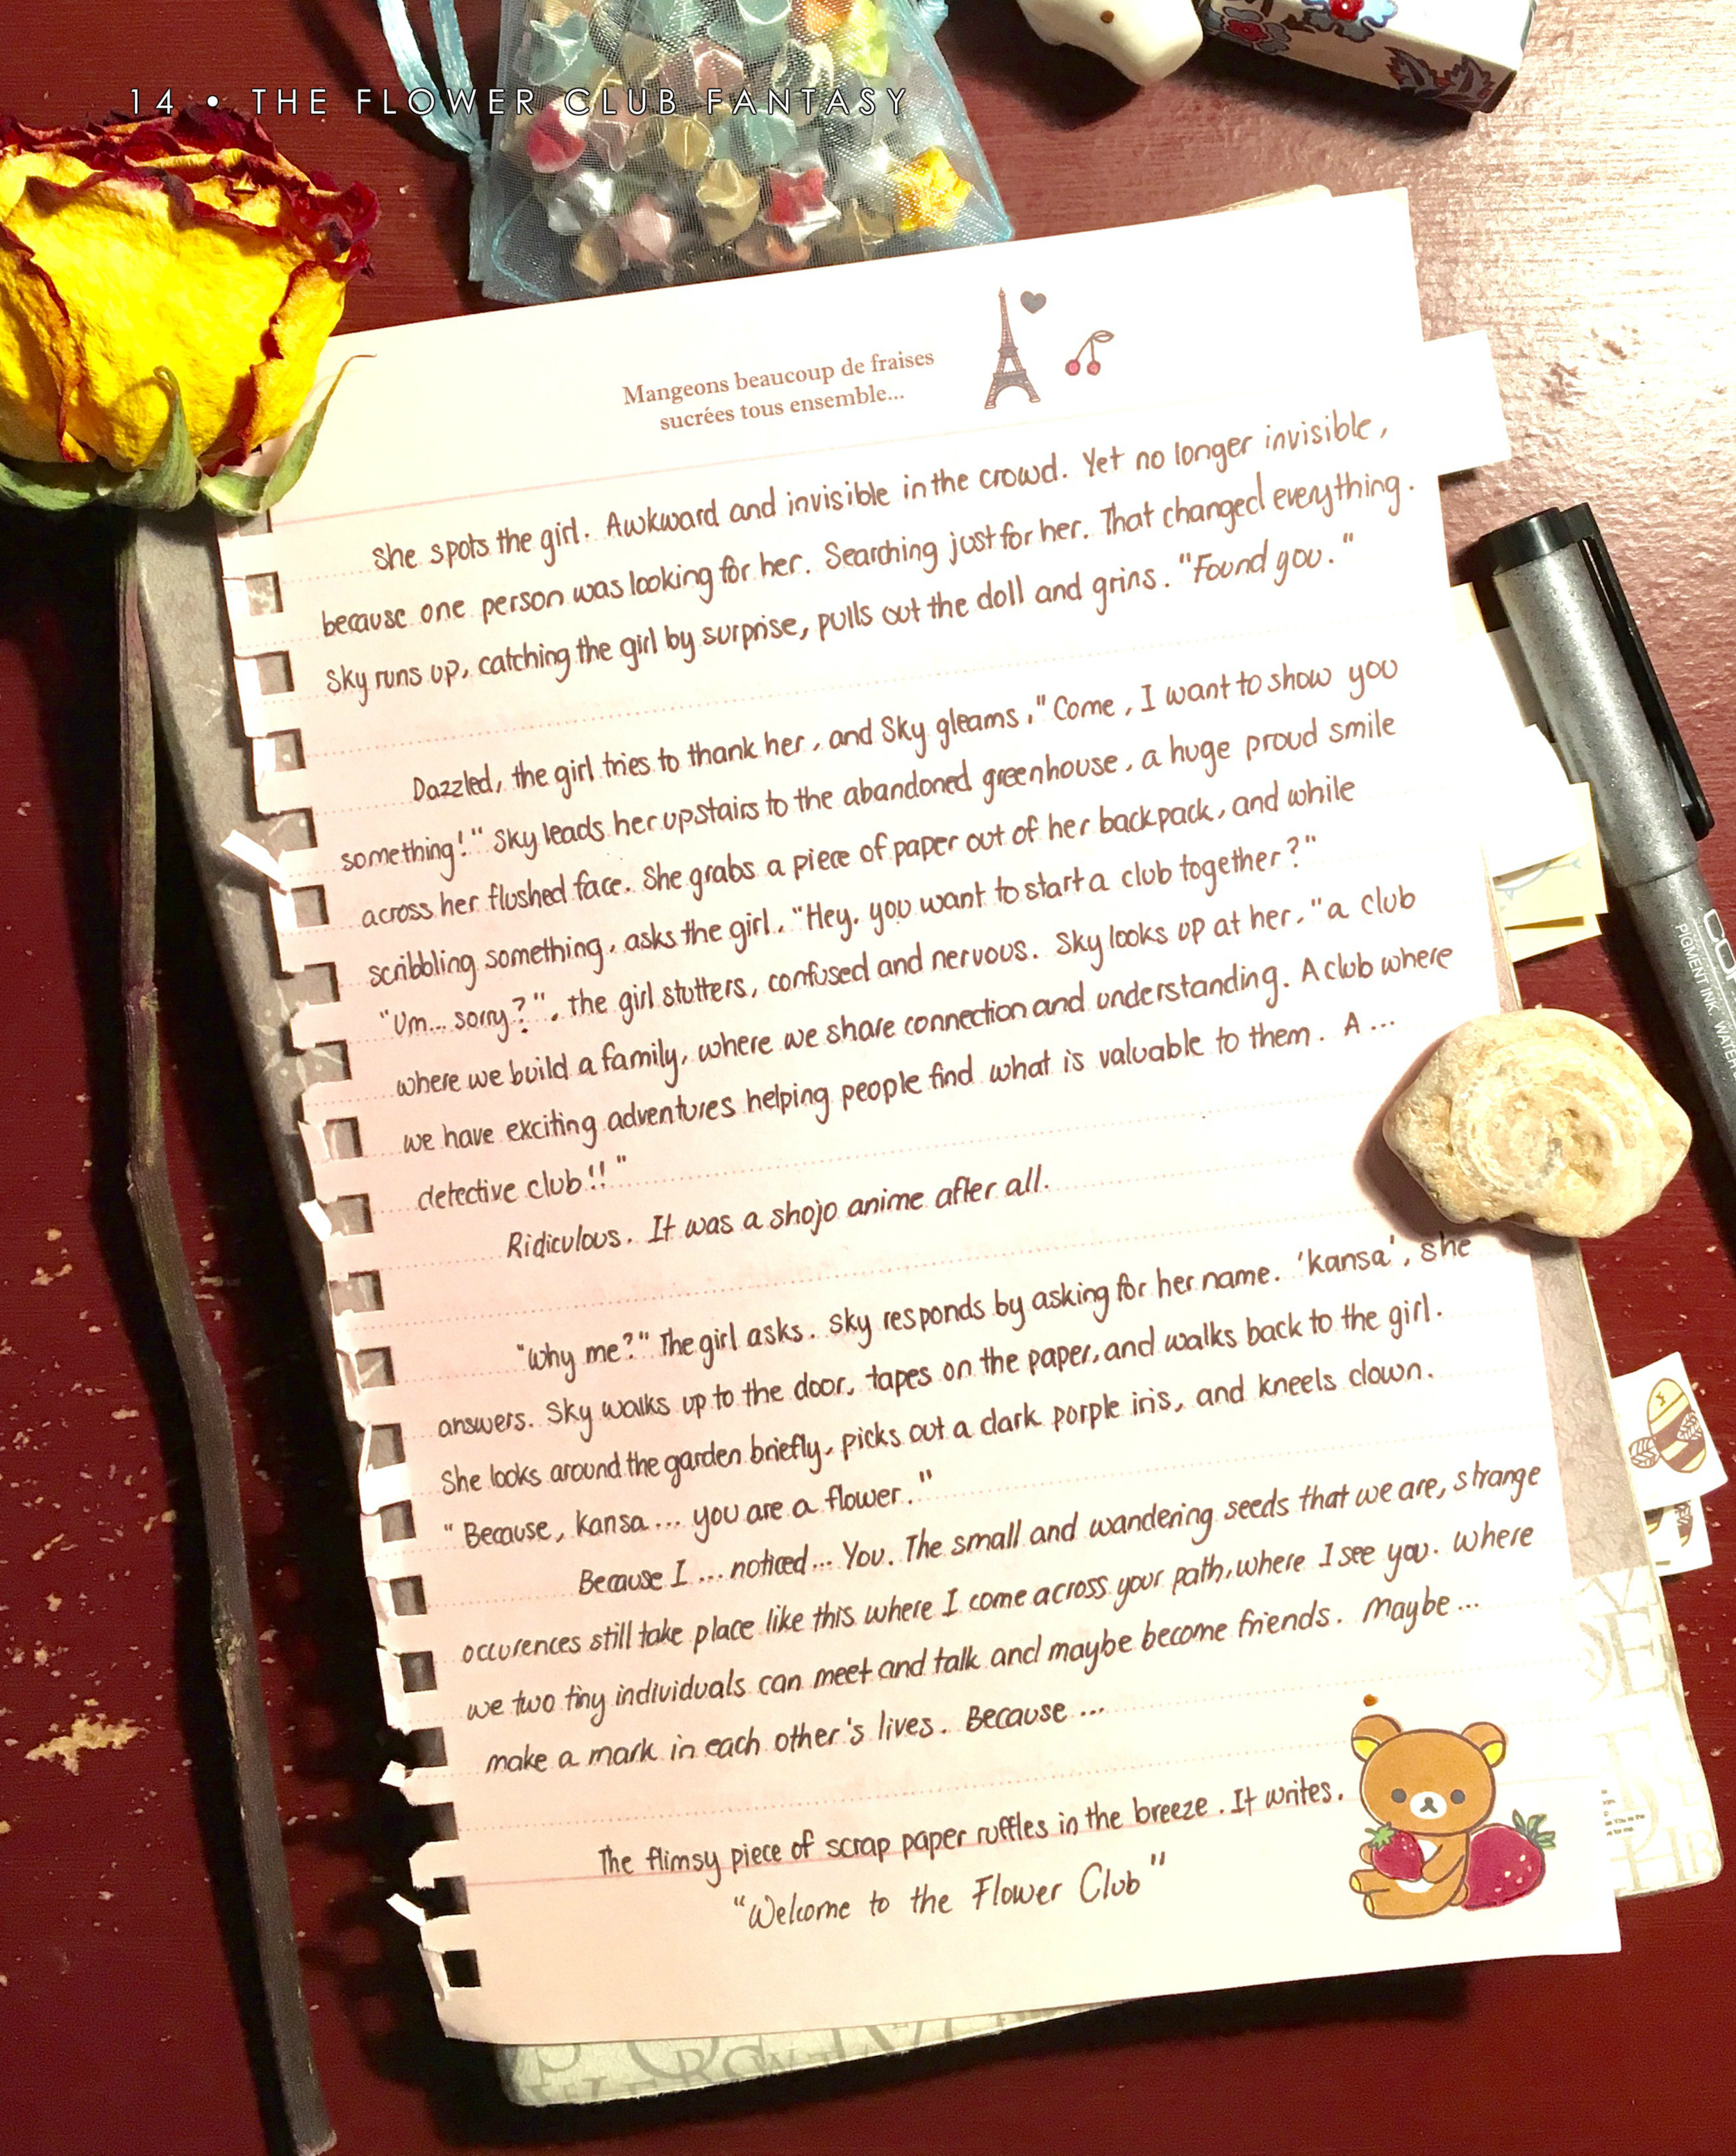 14 • THE FLOWER CLUB FANTASY
Mangeons beaucoup de fraises
sucrées tous ensemble...
She spots the girl. Awkward and invisible in the crowd. Yet no longer invisible,
because one person was looking for her. Searching just for her. That changed everything.
Sky runs up, catching the girl by surprise, pulls out the doll and grins. "Found you."
Dazzled, the girl tries to thank her, and Sky gleams, "Come, I want to show you
something!" Sky leads her upstairs to the abandoned greenhouse, a huge proud smile
across her flushed face. She grabs a piece of paper out of her backpack, and while
scribbling something, asks the girl, "Hey, you want to start a club together?"
"Um... sorry?", the girl stutters, confused and nervous. Sky looks up at her, "a club
where we build a family, where we share connection and understanding. A club where
we have exciting adventures helping people find what is valuable to them. A ...
detective club!!"
Ridiculous. It was a shojo anime after all.
"Why me?" The girl asks. Sky responds by asking for her name. 'Kansa', she
answers. Sky walks up to the door, tapes on the paper, and walks back to the girl.
She looks around the garden briefly, picks out a dark porple iris, and kneels down.
"Because, Kansa... you are a flower."
Because I ... noticed... You. The small and wandering seeds that we are, strange
occurences still take place like this where I come across your path, where I see you. Where
we two tiny individuals can meet and talk and maybe become friends. Maybe ...
make a mark in each other's lives. Because ...
The flimsy piece of scrap paper ruffles in the breeze. It writes,
"Welcome to the Flower Club"
PIGMENT INK. WATER